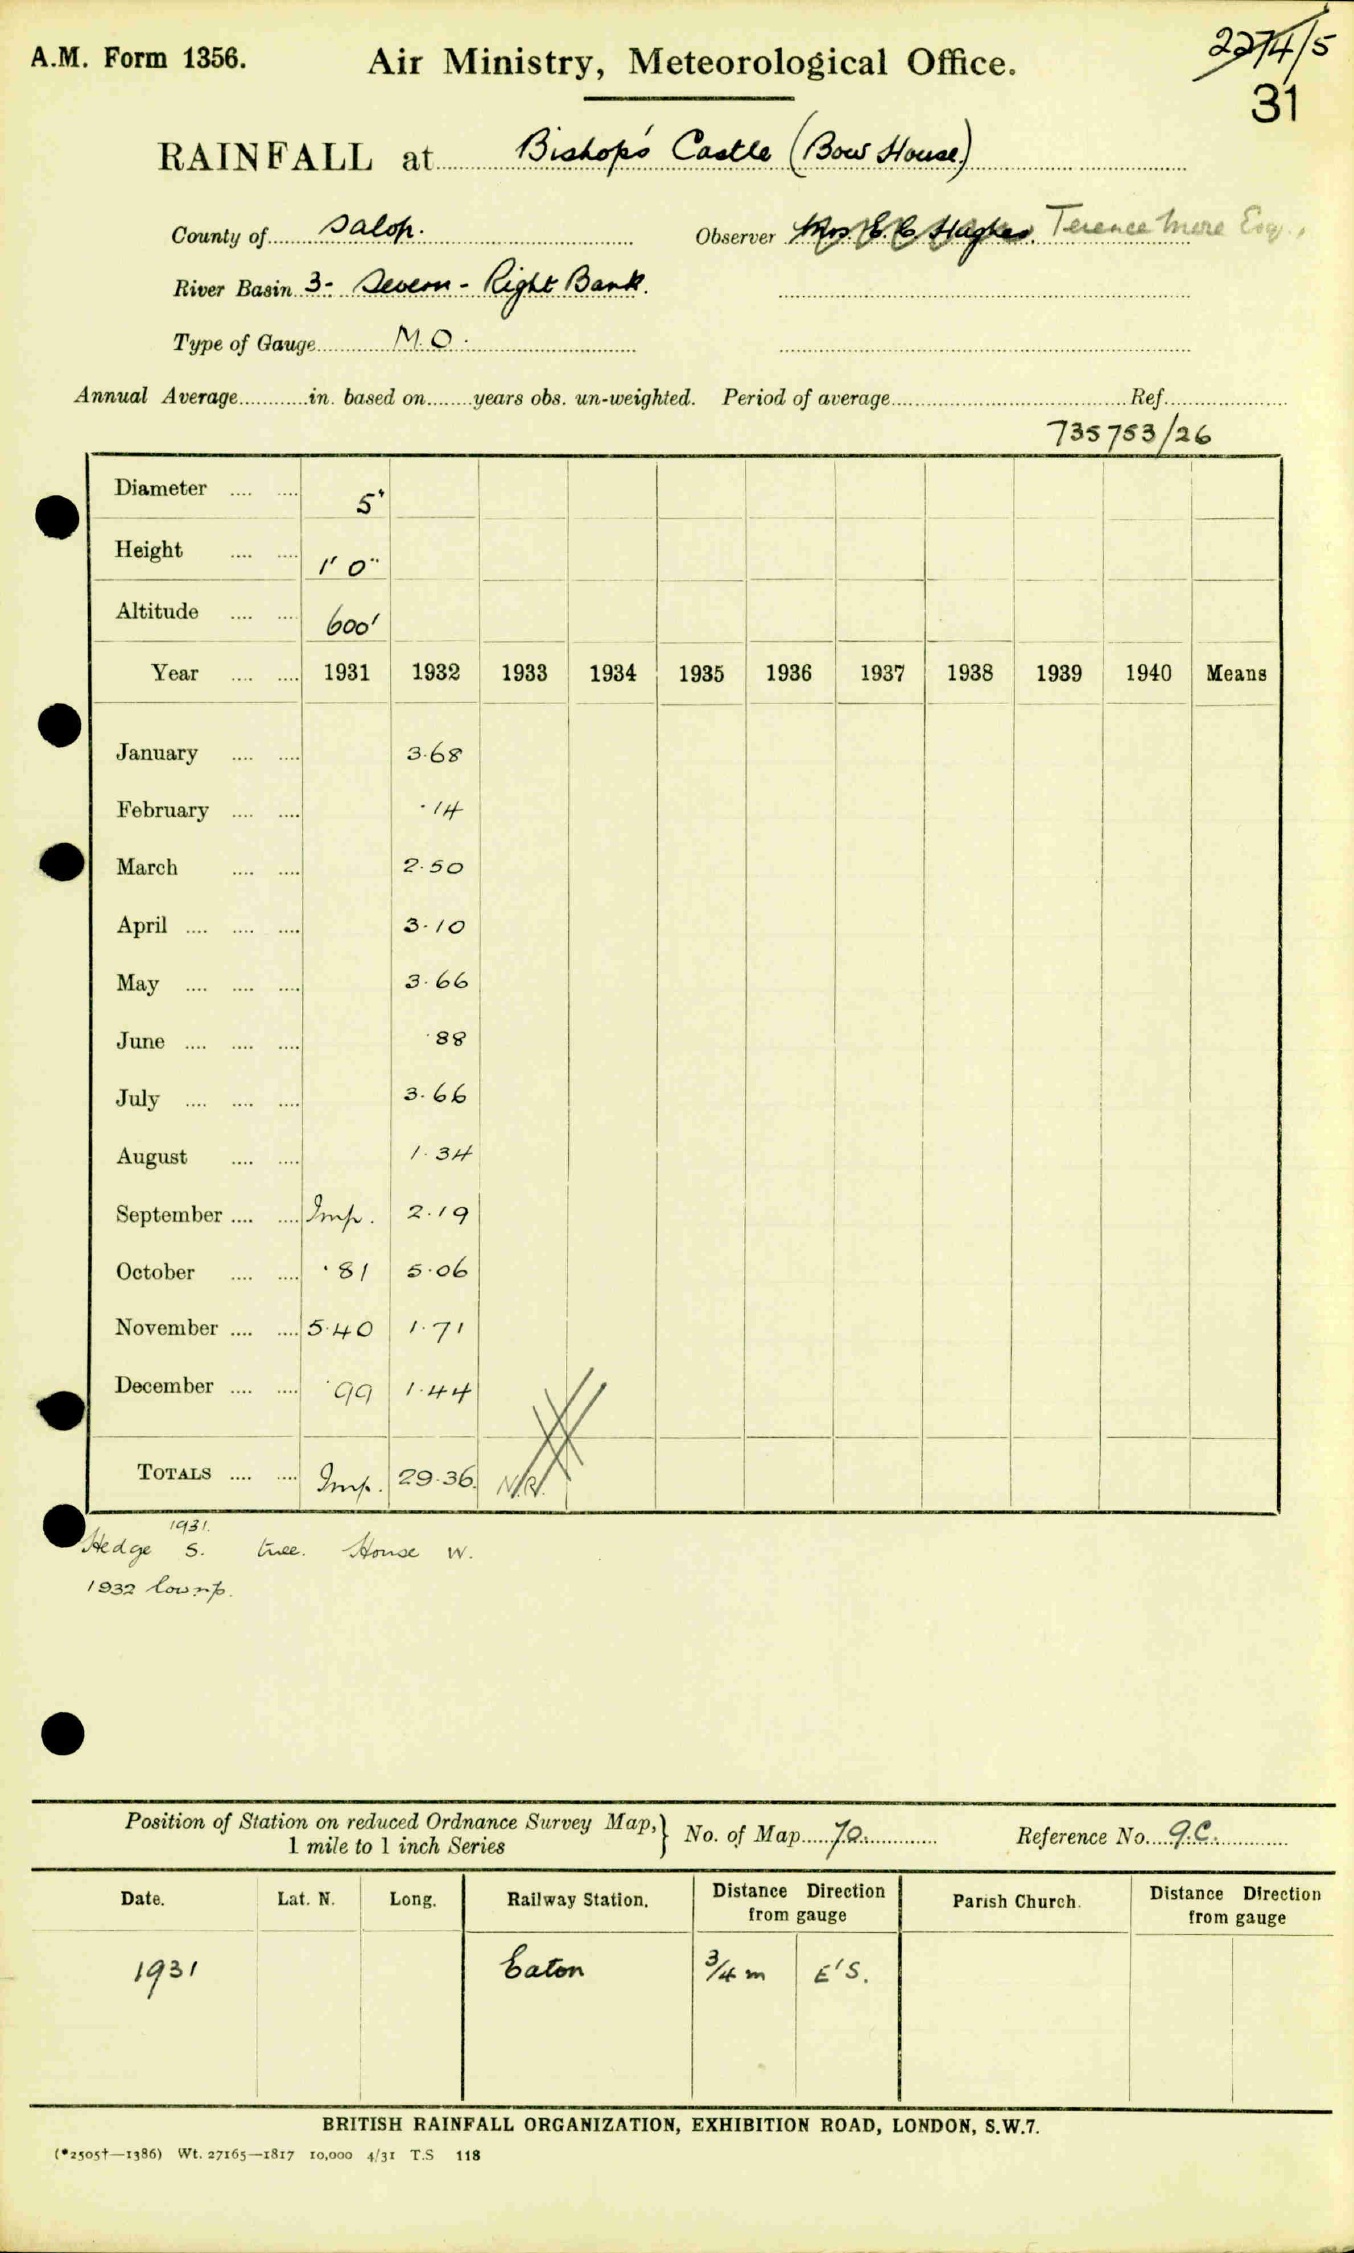 A.M. Form 1356.
Air Ministry, Meteorological Office.
2274/5
31
RAINFALL at Bishop's Castle (Bow House.)
County of Salop.
Observer Mrs. E. C. Hughes. Terence Mere Esq.,
River Basin 3- Severn - Right Bank.
Type of Gauge M.O.
Annual Average in. based on years obs. un-weighted. Period of average Ref.
735753/26
Diameter 5"
Height 1' 0"
Altitude 600'
Year 1931 1932 1933 1934 1935 1936 1937 1938 1939 1940 Means
January 3.68
February .14
March 2.50
April 3.10
May 3.66
June .88
July 3.66
August 1.34
September Imp. 2.19
October .81 5.06
November 5.40 1.71
December .99 1.44
TOTALS Imp. 29.36 N.R.
1931.
Hedge S. tree. House W.
1932
Position of Station on reduced Ordnance Survey Map,
1 mile to 1 inch Series
No. of Map 70.
Reference No. 9.C.
Date. Lat. N. Long. Railway Station. Distance Direction from gauge Parish Church. Distance Direction from gauge
1931 Eaton 3/4 m E'S.
BRITISH RAINFALL ORGANIZATION, EXHIBITION ROAD, LONDON, S.W.7.
(*2505†—1386) Wt. 27165—1817 10,000 4/31 T.S 118